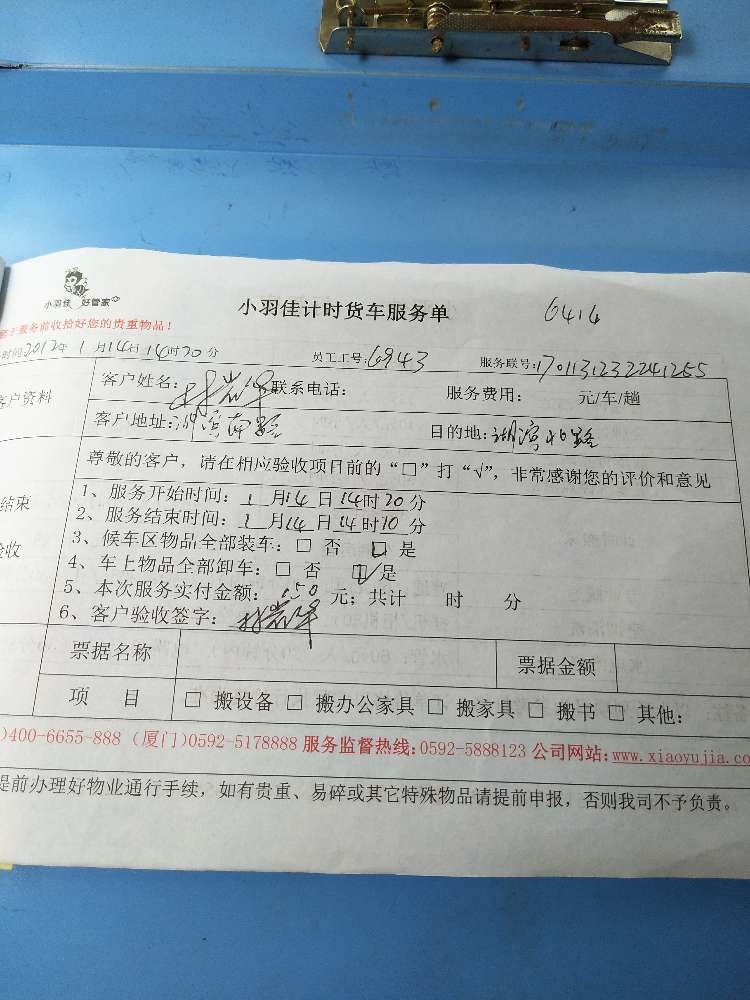 小羽佳 好管家
小羽佳计时货车服务单 6414
服务前收拾好您的贵重物品！
时间:2012年1月14日14时20分 员工工号:6943 服务联号:1701131232241255
客户资料 客户姓名: 联系电话: 服务费用: 元/车/趟
客户地址:湖滨南路 目的地:湖滨北路
尊敬的客户，请在相应验收项目前的“□”打“√”，非常感谢您的评价和意见
结束
验收
1、服务开始时间:1月14日14时20分
2、服务结束时间:1月14日14时10分
3、候车区物品全部装车:□ 否 □ 是
4、车上物品全部卸车:□ 否 ☑是
5、本次服务实付金额:150元; 共计 时 分
6、客户验收签字:
票据名称 票据金额
项 目 □ 搬设备 □ 搬办公家具 □ 搬家具 □ 搬书 □ 其他:
)400-6655-888 (厦门)0592-5178888 服务监督热线:0592-5888123 公司网站:www.xiaoyujia.co
提前办理好物业通行手续，如有贵重、易碎或其它特殊物品请提前申报，否则我司不予负责。